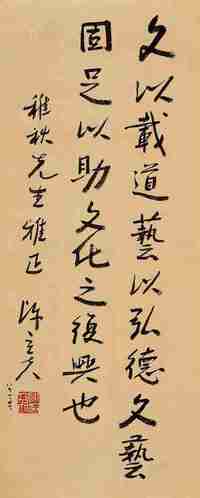 文以載道藝以弘德文藝
固足以助文化之復興也
稚秋先生雅正
陳立夫